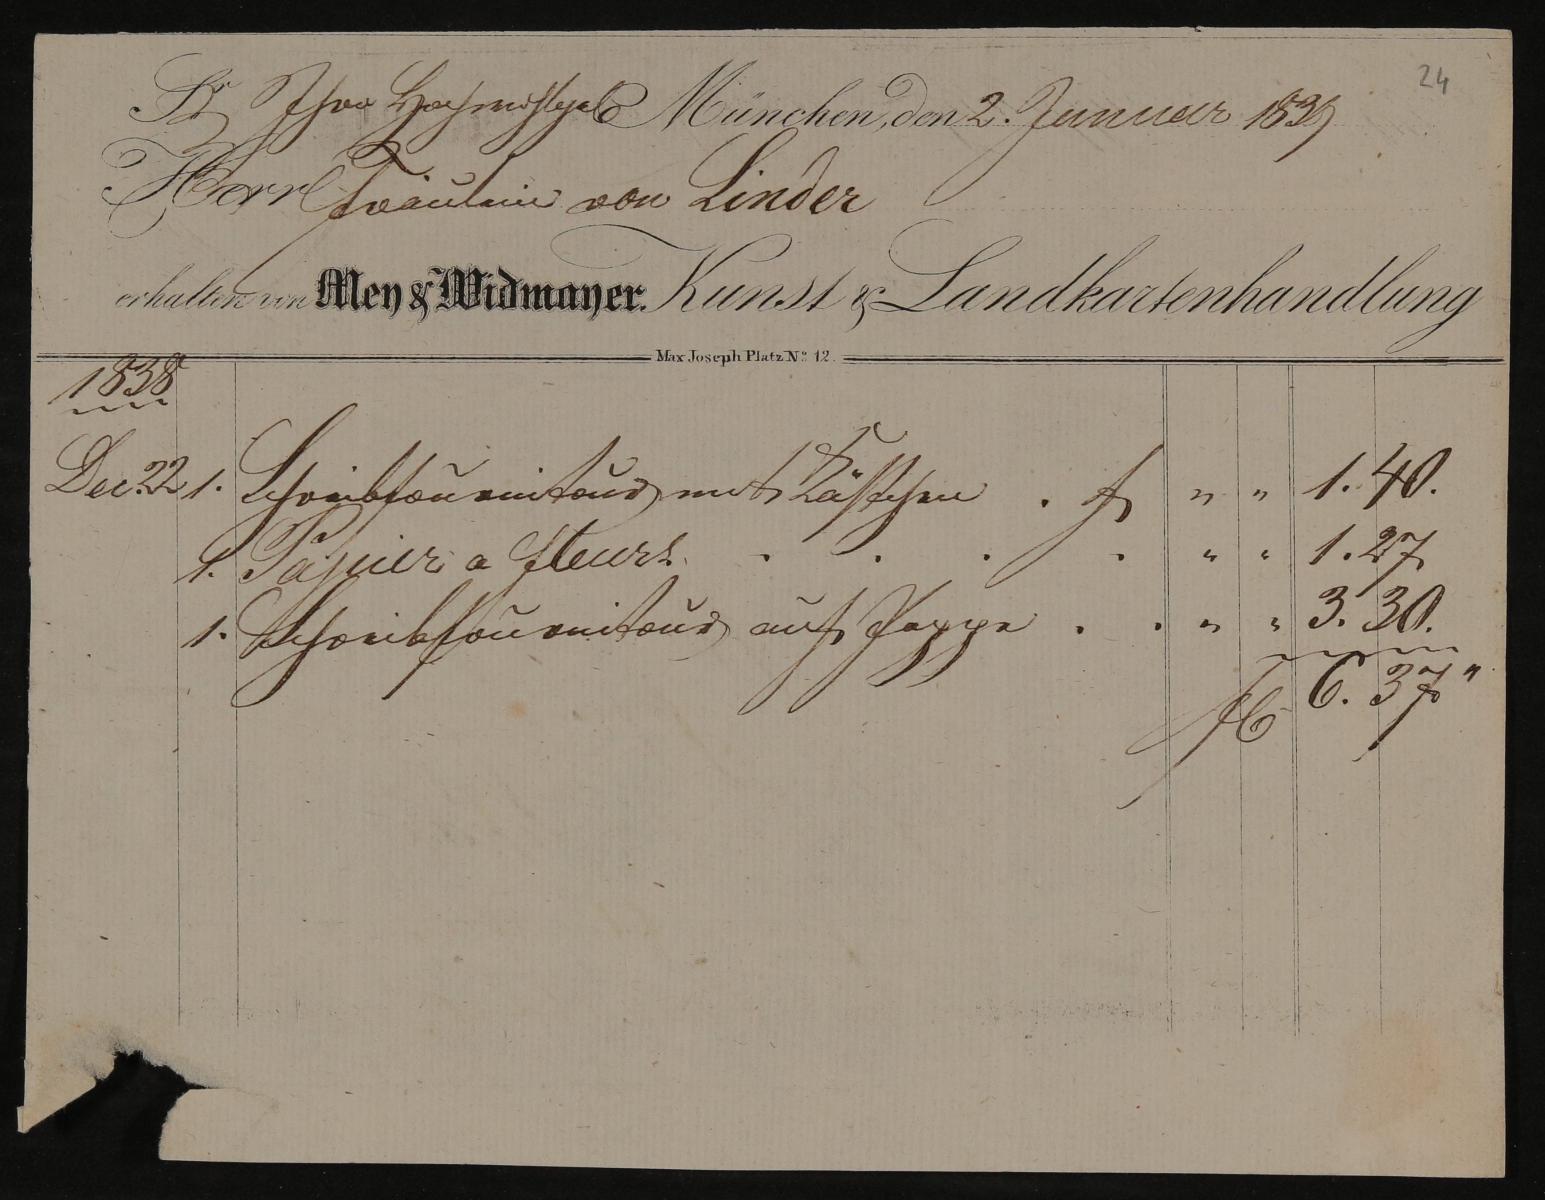 24
Sr Ihro Hochwohlgeb München, den 2. Januar 1839
Herr Fräulein von Linder
erhalten von Mey & Widmayer. Kunst & Landkartenhandlung
Max Joseph Platz No. 12.
1838
Dec. 22 1. Schreibfournitour mit Kästchen . f " " 1. 40.
1. Papier a fleurs . . . . " " 1. 27
1. Schreibfournitour auf Pappe . . " " 3. 30.
f 6. 37 "